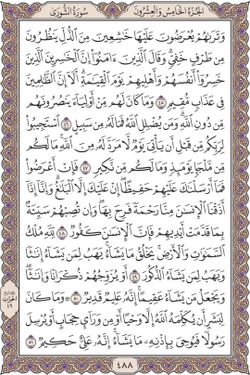 الجزء الخامس والعشرون
سورة الشورى
وَتَرَىٰهُمْ يُعْرَضُونَ عَلَيْهَا خَٰشِعِينَ مِنَ ٱلذُّلِّ يَنظُرُونَ
مِن طَرْفٍ خَفِىٍّ وَقَالَ ٱلَّذِينَ ءَامَنُوٓا۟ إِنَّ ٱلْخَٰسِرِينَ ٱلَّذِينَ
خَسِرُوٓا۟ أَنفُسَهُمْ وَأَهْلِيهِمْ يَوْمَ ٱلْقِيَٰمَةِ أَلَآ إِنَّ ٱلظَّٰلِمِينَ
فِى عَذَابٍ مُّقِيمٍ ٤٥ وَمَا كَانَ لَهُم مِّنْ أَوْلِيَآءَ يَنصُرُونَهُم
مِّن دُونِ ٱللَّهِ وَمَن يُضْلِلِ ٱللَّهُ فَمَا لَهُۥ مِن سَبِيلٍ ٤٦ ٱسْتَجِيبُوا۟
لِرَبِّكُم مِّن قَبْلِ أَن يَأْتِىَ يَوْمٌ لَّا مَرَدَّ لَهُۥ مِنَ ٱللَّهِ مَا لَكُم
مِّن مَّلْجَإٍ يَوْمَئِذٍ وَمَا لَكُم مِّن نَّكِيرٍ ٤٧ فَإِنْ أَعْرَضُوا۟
فَمَآ أَرْسَلْنَٰكَ عَلَيْهِمْ حَفِيظًا إِنْ عَلَيْكَ إِلَّا ٱلْبَلَٰغُ وَإِنَّآ إِذَآ
أَذَقْنَا ٱلْإِنسَٰنَ مِنَّا رَحْمَةً فَرِحَ بِهَا وَإِن تُصِبْهُمْ سَيِّئَةٌۢ
بِمَا قَدَّمَتْ أَيْدِيهِمْ فَإِنَّ ٱلْإِنسَٰنَ كَفُورٌ ٤٨ لِّلَّهِ مُلْكُ
ٱلسَّمَٰوَٰتِ وَٱلْأَرْضِ يَخْلُقُ مَا يَشَآءُ يَهَبُ لِمَن يَشَآءُ إِنَٰثًا
وَيَهَبُ لِمَن يَشَآءُ ٱلذُّكُورَ ٤٩ أَوْ يُزَوِّجُهُمْ ذُكْرَانًا وَإِنَٰثًا
وَيَجْعَلُ مَن يَشَآءُ عَقِيمًا إِنَّهُۥ عَلِيمٌ قَدِيرٌ ٥٠ وَمَا كَانَ
لِبَشَرٍ أَن يُكَلِّمَهُ ٱللَّهُ إِلَّا وَحْيًا أَوْ مِن وَرَآئِ حِجَابٍ أَوْ يُرْسِلَ
رَسُولًا فَيُوحِىَ بِإِذْنِهِۦ مَا يَشَآءُ إِنَّهُۥ عَلِىٌّ حَكِيمٌ ٥١
٤٨٨